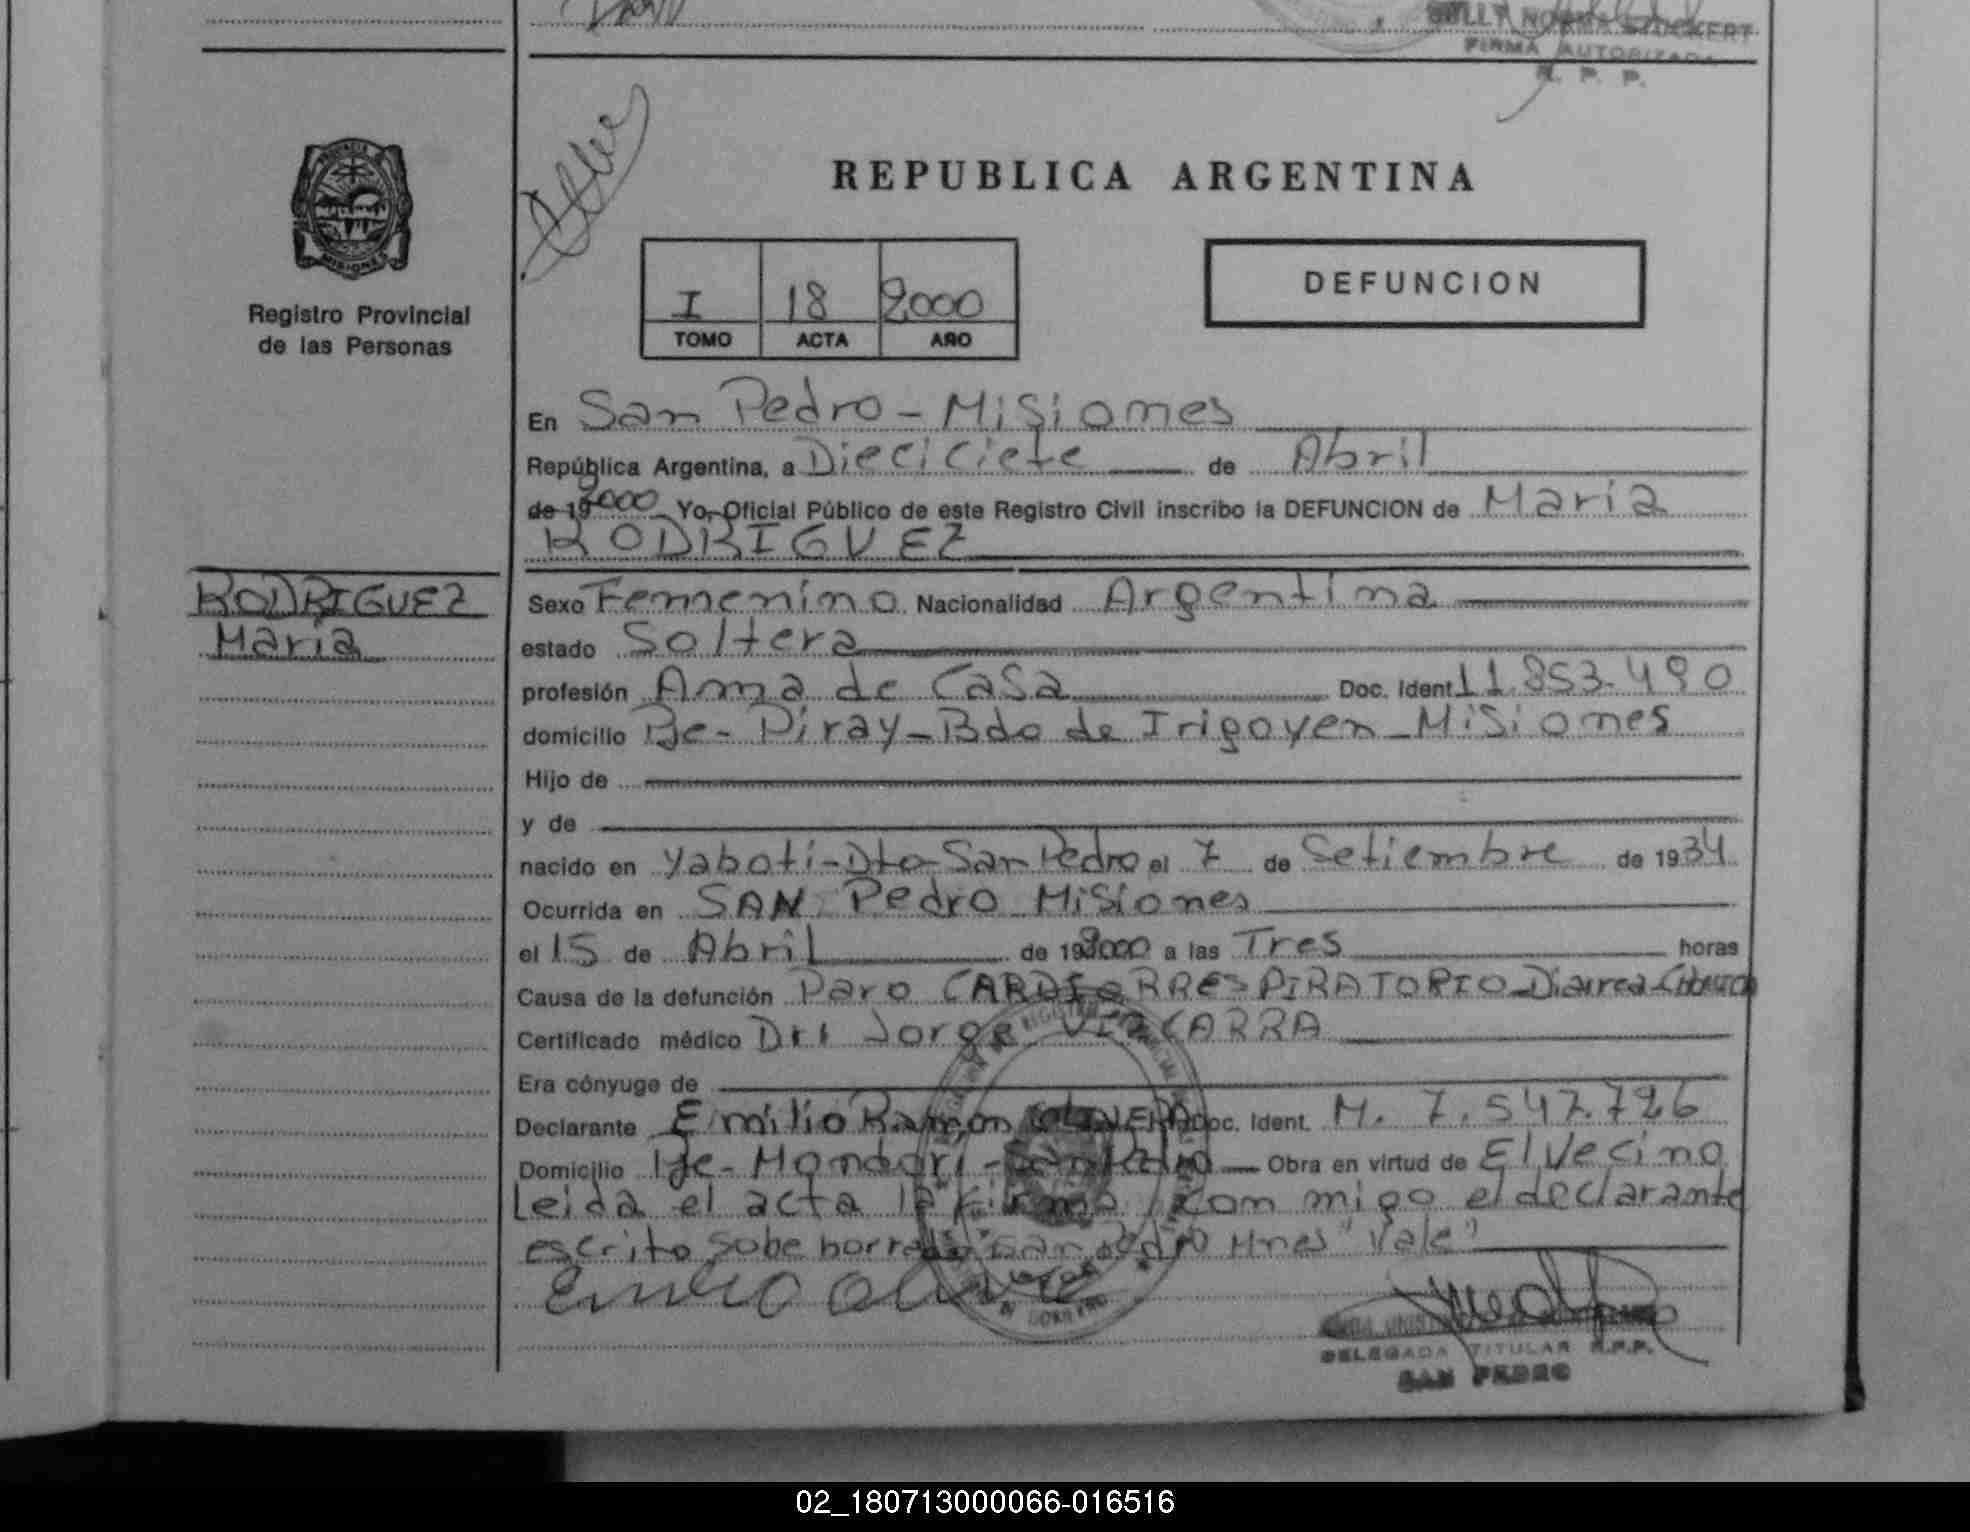 FIRMA AUTORIZADA
R. P. P.
PROVINCIA DE
MISIONES
Registro Provincial
de las Personas
REPUBLICA ARGENTINA
I 18 2000
TOMO ACTA AÑO
DEFUNCION
En San Pedro - Misiones
República Argentina, a Dieciciete de Abril
de 19 2000 Yo, Oficial Público de este Registro Civil inscribo la DEFUNCION de Maria
RODRIGUEZ
RODRIGUEZ
Maria
Sexo Femenino Nacionalidad Argentina
estado Soltera
profesión Ama de Casa Doc. Ident 11.853.490
domicilio Pje- Piray - Bdo de Irigoyen - Misiones
Hijo de
y de
nacido en Yaboti-Dto-San Pedro el 7 de Setiembre de 1934
Ocurrida en SAN Pedro Misiones
el 15 de Abril de 19 2000 a las Tres horas
Causa de la defunción Paro CARDIORRESPIRATORIO - Diarrea
Certificado médico Dr: Jorge VIZCARRA
Era cónyuge de
Declarante Emilio Ramon Doc. Ident. M. 7.547.726
Domicilio Pje- Mondori - San Pedro Obra en virtud de El Vecino
Leida el acta la firma com migo el declarante
escrito sobe borrado "San Pedro Mnes" "Vale"
DELEGADA TITULAR R.P.P.
SAN PEDRO
02_180713000066-016516